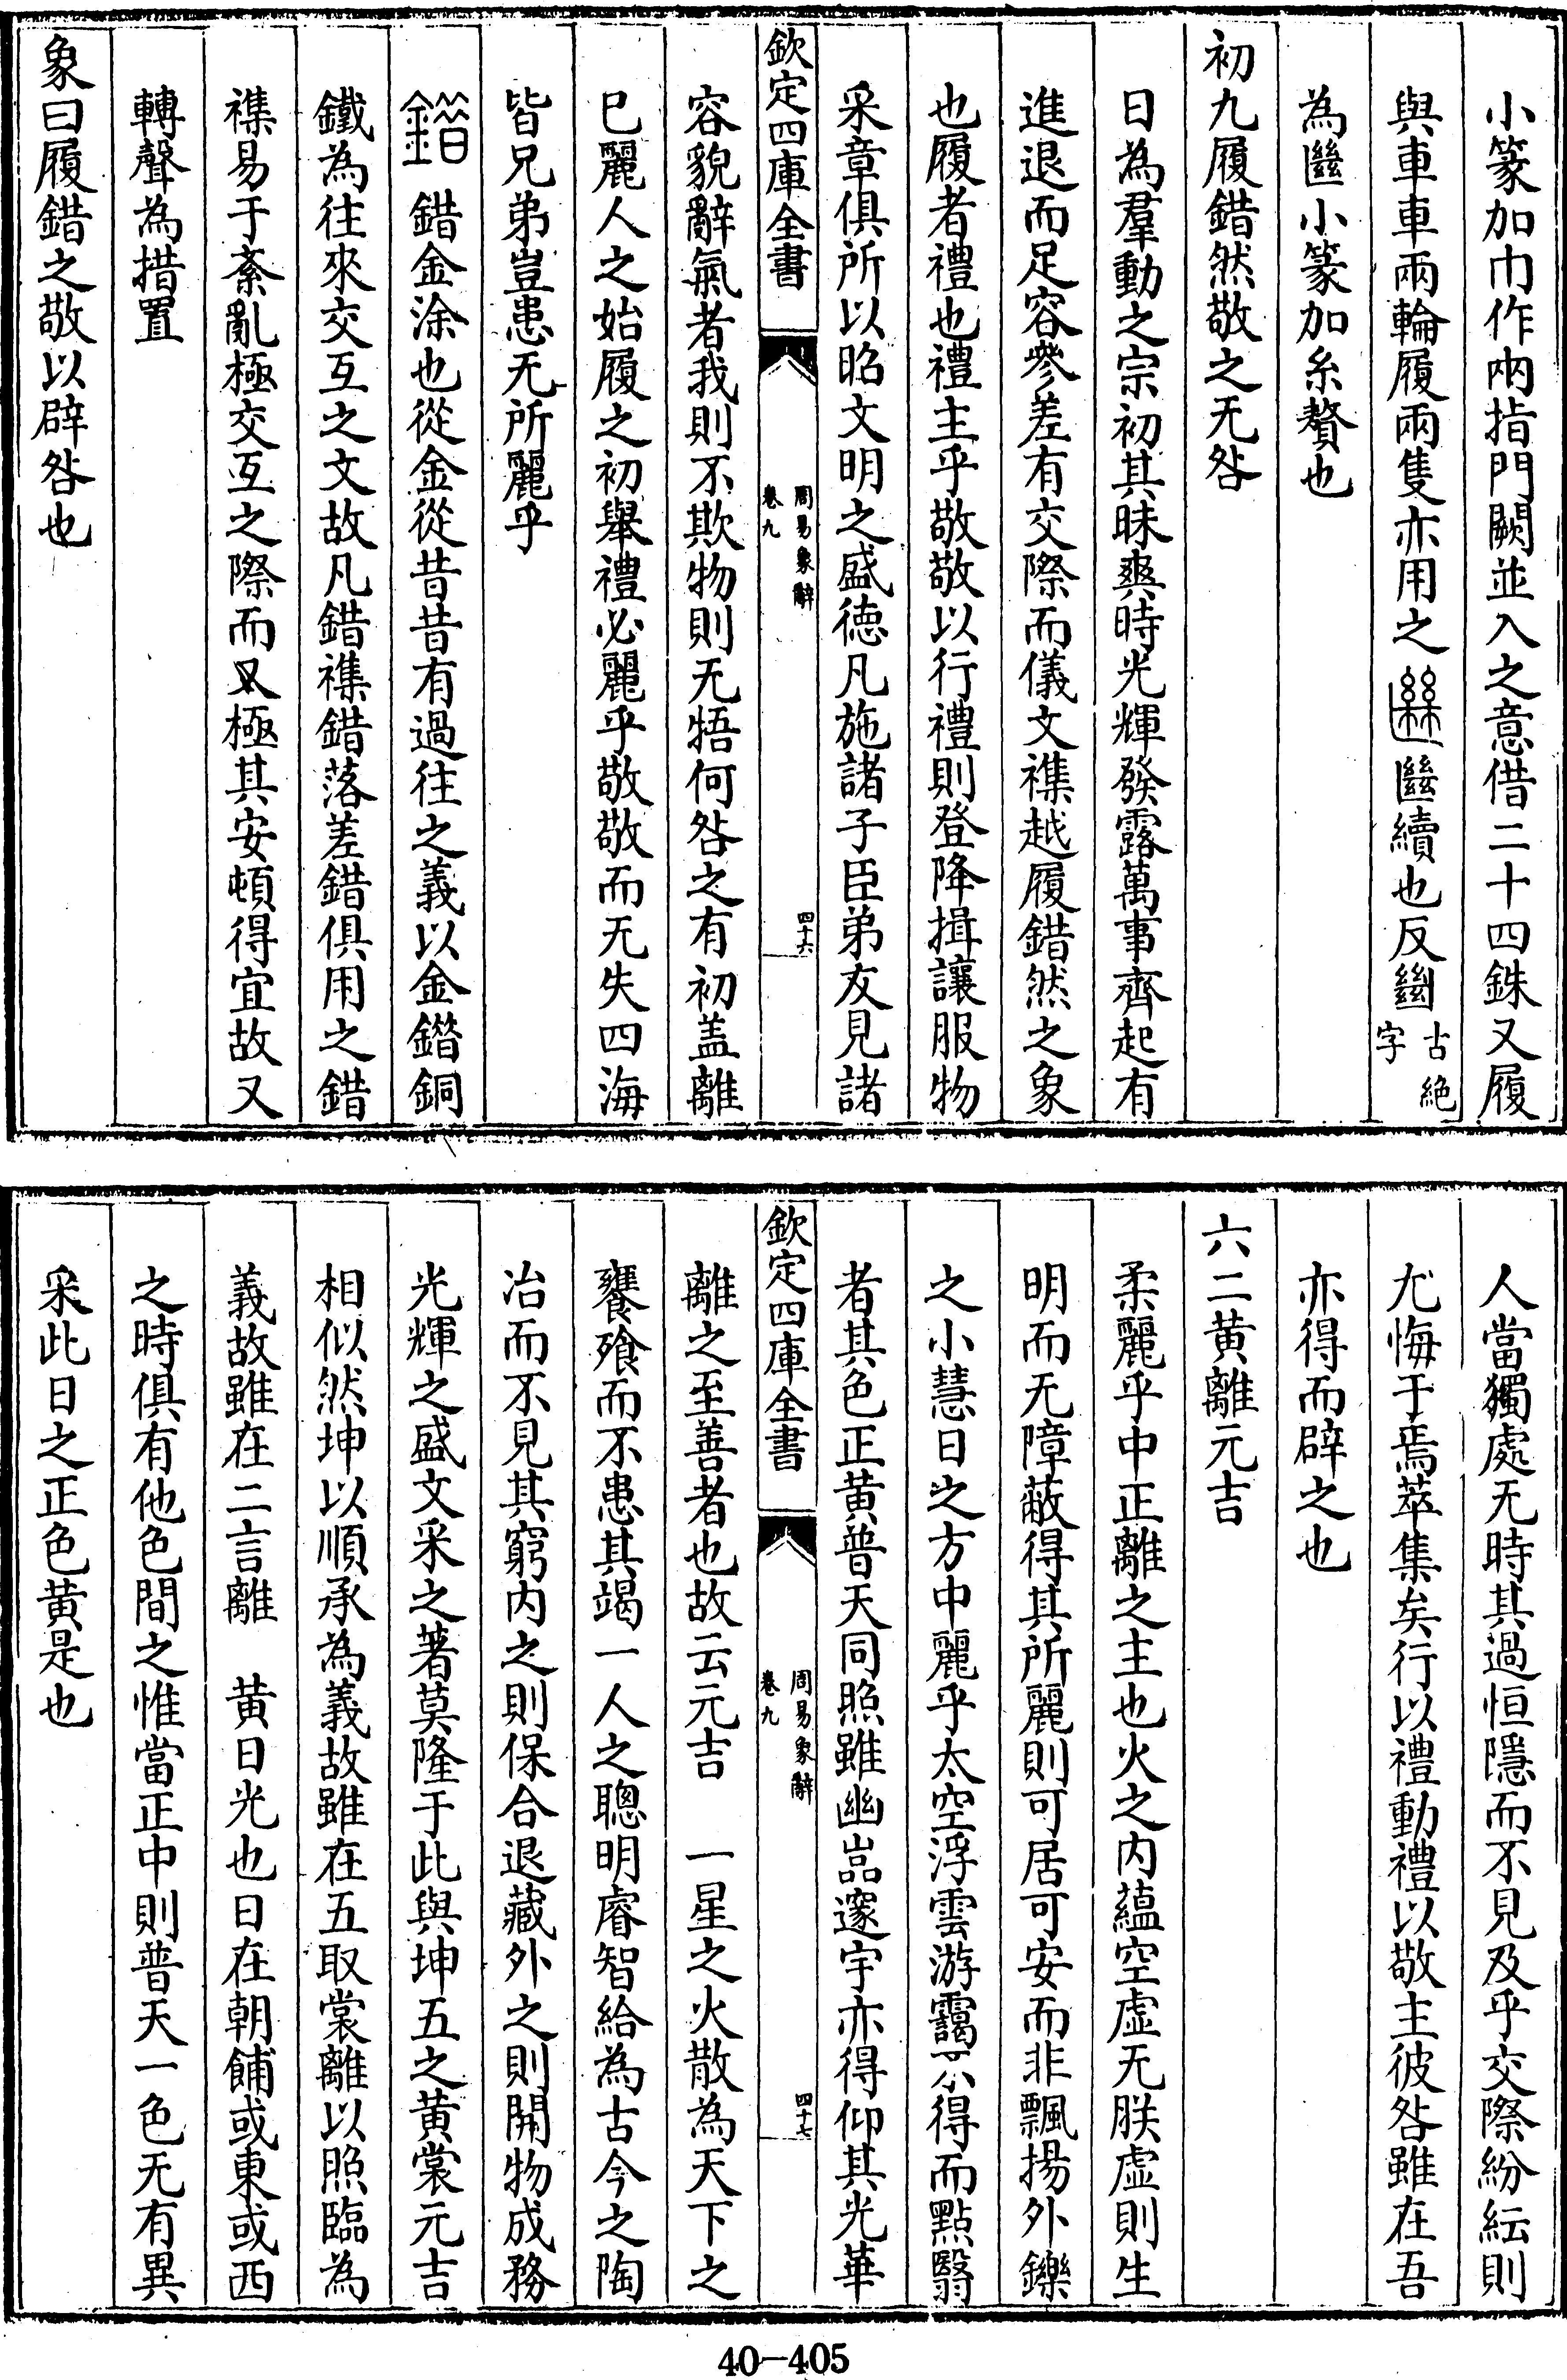 小篆加巾作㒼指門闕並入之意借二十四銖又履
與車車兩輪履兩隻亦用之 㡭繼續也反𢇍古絶字
為繼小篆加糸贅也
初九履錯然敬之无咎
日為羣動之宗初其昧爽時光輝發露萬事齊起有
進退而足容參差有交際而儀文襍越履錯然之象
也履者禮也禮主乎敬敬以行禮則登降揖讓服物
采章俱所以昭文明之盛德凡施諸子臣弟友見諸
欽定四庫全書 周易象辭 卷九 四十六
容貌辭氣者我則不欺物則无牾何咎之有初盖離
巳麗人之始履之初舉禮必麗乎敬敬而无失四海
皆兄弟豈患无所麗乎
錯 錯金涂也從金從昔昔有過往之義以金鐕銅
鐵為往來交互之文故凡錯襍錯落差錯俱用之錯
襍易于紊亂極交互之際而又極其安頓得宜故又
轉聲為措置
象曰履錯之敬以辟咎也
人當獨處无時其過恒隱而不見及乎交際紛紜則
尤悔于焉萃集矣行以禮動禮以敬主彼咎雖在吾
亦得而辟之也
六二黄離元吉
柔麗乎中正離之主也火之内蘊空虚无朕虚則生
明而无障蔽得其所麗則可居可安而非飄揚外鑠
之小慧日之方中麗乎太空浮雲游靄不得而點翳
者其色正黄普天同照雖幽嵓邃宇亦得仰其光華
欽定四庫全書 周易象辭 卷九 四十七
離之至善者也故云元吉 一星之火散為天下之
饔飱而不患其竭一人之聰明睿智給為古今之陶
冶而不見其窮内之則保合退藏外之則開物成務
光輝之盛文采之著莫隆于此與坤五之黄裳元吉
相似然坤以順承為義故雖在五取裳離以照臨為
義故雖在二言離 黄日光也日在朝餔或東或西
之時俱有他色間之惟當正中則普天一色无有異
采此日之正色黄是也
40-405